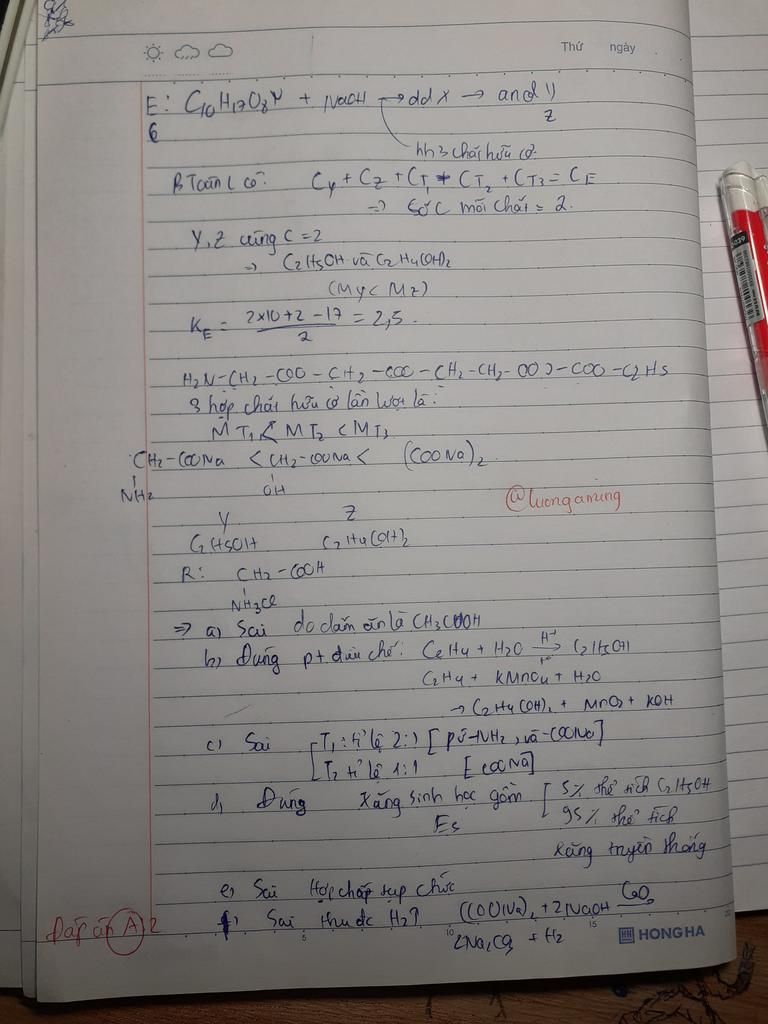 Thứ ngày
E: C₁₀H₁₇O₈N + NaOH → dd X → ancol Y
6 Z
hh 3 chất hữu cơ
BToàn C có: Cy + Cz + CT₁ + CT₂ + CT₃ = CE
⇒ số C mỗi chất = 2.
Y, Z cùng C = 2
⇒ C₂H₅OH và C₂H₄(OH)₂
(My < Mz)
KE = (2×10+2-17)/2 = 2,5.
H₂N-CH₂-COO-CH₂-COO-CH₂-CH₂-OOC-COO-C₂H₅
3 hợp chất hữu cơ lần lượt là:
MT₁ < MT₂ < MT₃
CH₂-COONa < CH₂-COONa < (COONa)₂
NH₂ OH
@luonganung
Y Z
C₂H₅OH C₂H₄(OH)₂
R: CH₂-COOH
NH₃Cl
⇒ a) Sai do dấm ăn là CH₃COOH
b) Đúng pt điều chế: C₂H₄ + H₂O → C₂H₅OH
C₂H₄ + KMnO₄ + H₂O
→ C₂H₄(OH)₂ + MnO₂ + KOH
c) Sai T₁: tỉ lệ 2:1 [pứ -NH₂, và -COONa]
T₂ tỉ lệ 1:1 [COONa]
d) Đúng Xăng sinh học gồm [5% thể tích C₂H₅OH
E₅ 95% thể tích
xăng truyền thống
e) Sai Hợp chấp tạp chức
f) Sai thu đc H₂↑ (COONa)₂ + 2NaOH CaO
2Na₂CO₃ + H₂
Đáp án A) 2
5 10 15 20
HH HONG HA